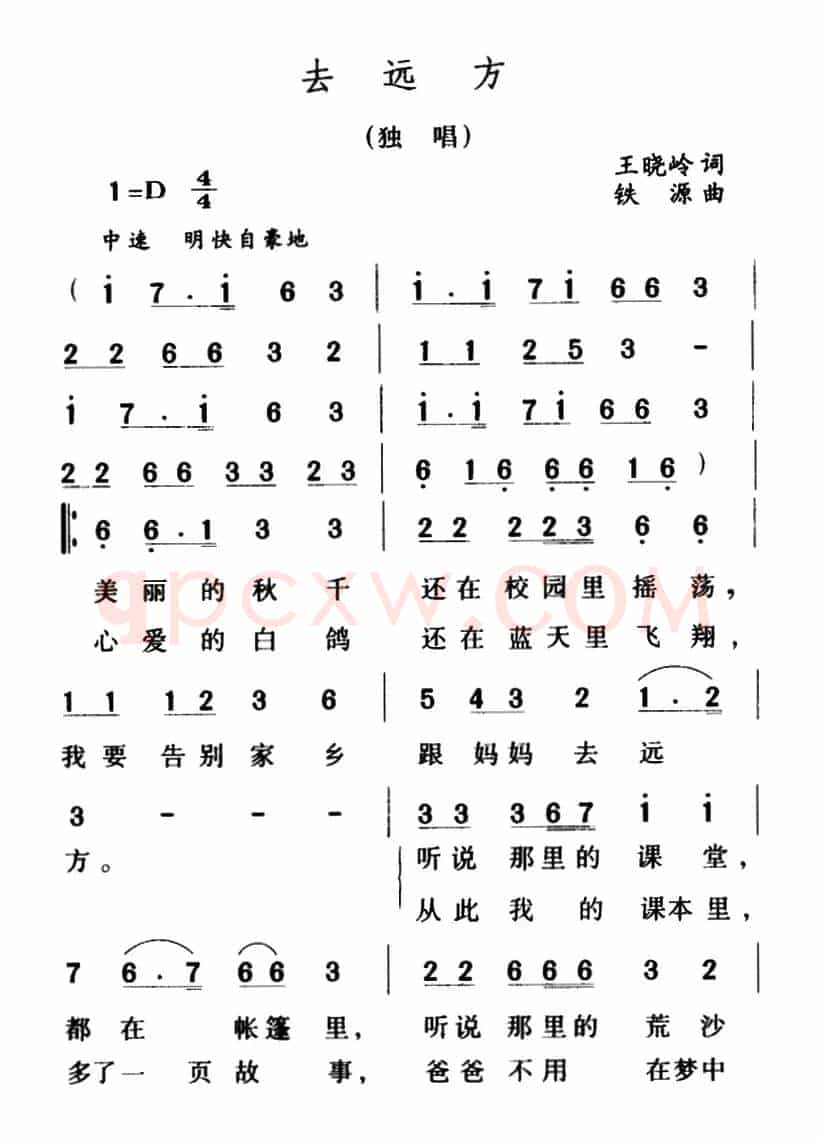 去 远 方
(独 唱)
王晓岭 词
1=D 4/4
铁 源 曲
中速 明快自豪地
( i 7 . i 6 3 | i . i 7 i 6 6 3 |
2 2 6 6 3 2 | 1 1 2 5 3 - |
i 7 . i 6 3 | i . i 7 i 6 6 3 |
2 2 6 6 3 3 2 3 | 6 1 6 6 6 1 6 ) |
‖: 6 6 . 1 3 3 | 2 2 2 2 3 6 6 |
美 丽 的 秋 千 还 在 校 园 里 摇 荡，
心 爱 的 白 鸽 还 在 蓝 天 里 飞 翔，
qpcxw.COM
1 1 1 2 3 6 | 5 4 3 2 1 . 2 |
我 要 告 别 家 乡 跟 妈 妈 去 远
3 - - - | 3 3 3 6 7 i i |
方。 听 说 那 里 的 课 堂，
从 此 我 的 课 本 里，
7 6 . 7 6 6 3 | 2 2 6 6 6 3 2 |
都 在 帐 篷 里， 听 说 那 里 的 荒 沙
多 了 一 页 故 事， 爸 爸 不 用 在 梦 中